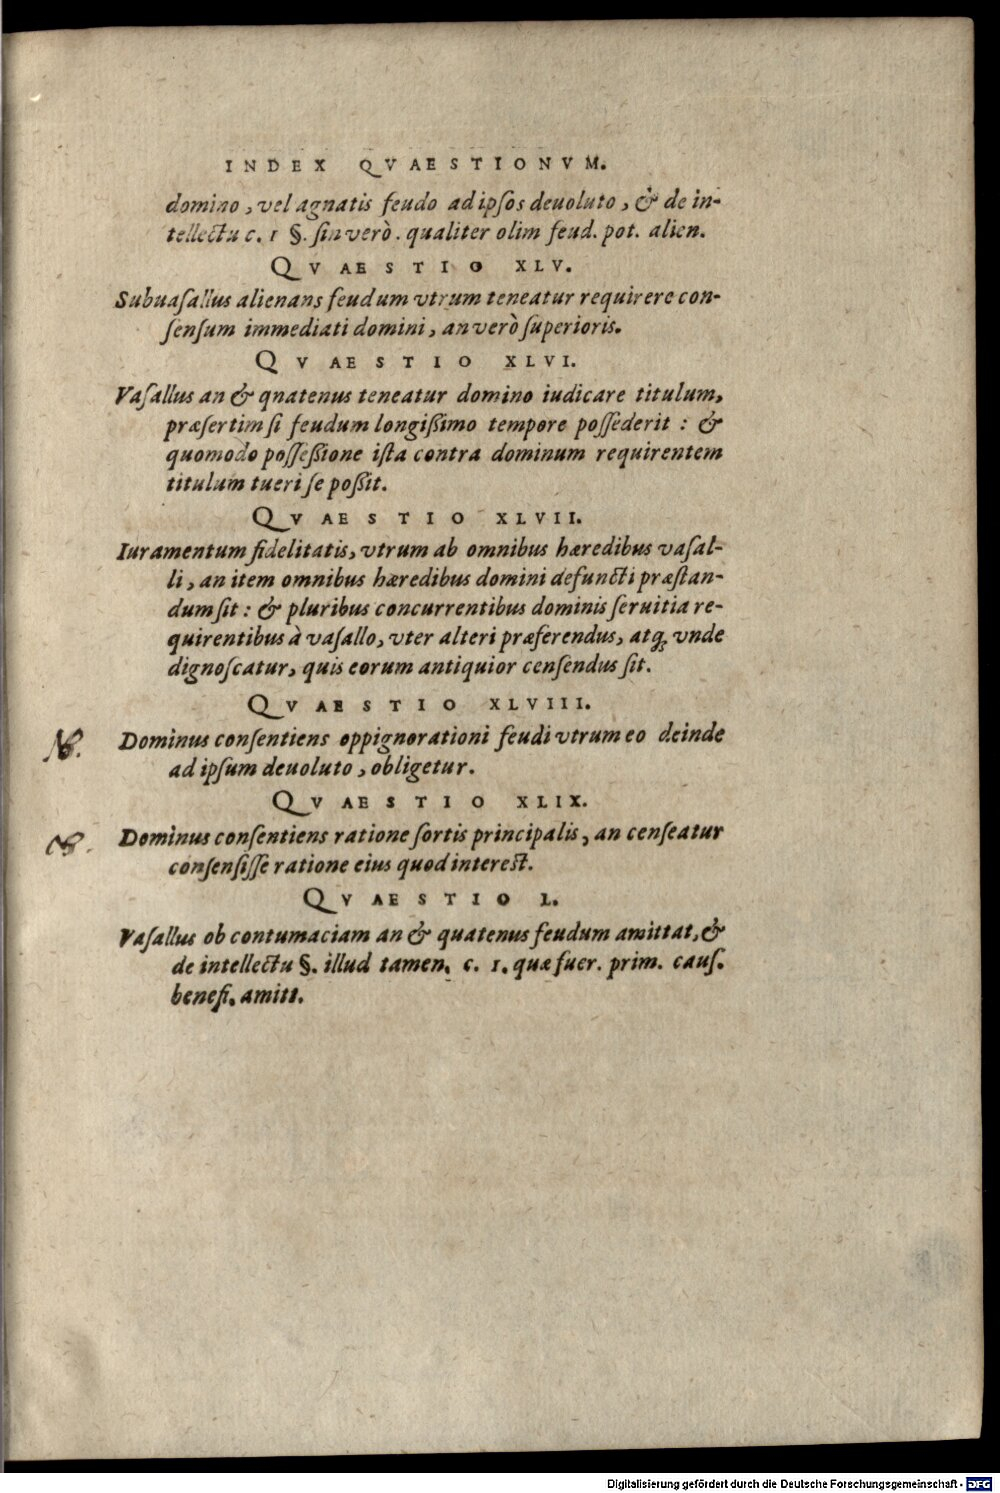 INDEX QVAESTIONVM.
domino, vel agnatis feudo ad ipſos deuoluto, & de in-
tellectu c. 1 §. ſin verò. qualiter olim feud. pot. alien.
QVAESTIO XLV.
Subuaſallus alienans feudum vtrum teneatur requirere con-
ſenſum immediati domini, an verò ſuperioris.
QVAESTIO XLVI.
Vaſallus an & qnatenus teneatur domino iudicare titulum,
præſertim ſi feudum longißimo tempore poſſederit : &
quomodo poſſeßione iſta contra dominum requirentem
titulum tueri ſe poßit.
QVAESTIO XLVII.
Iuramentum fidelitatis, vtrum ab omnibus hæredibus vaſal-
li, an item omnibus hæredibus domini defuncti præſtan-
dum ſit : & pluribus concurrentibus dominis ſeruitia re-
quirentibus à vaſallo, vter alteri præferendus, atq; vnde
dignoſcatur, quis eorum antiquior cenſendus ſit.
QVAESTIO XLVIII.
NB. Dominus conſentiens oppignorationi feudi vtrum eo deinde
ad ipſum deuoluto, obligetur.
QVAESTIO XLIX.
NB. Dominus conſentiens ratione ſortis principalis, an cenſeatur
conſenſiſſe ratione eius quod intereſt.
QVAESTIO L.
Vaſallus ob contumaciam an & quatenus feudum amittat, &
de intellectu §. illud tamen. c. 1. quæ fuer. prim. cauſ.
benefi. amitt.
Digitalisierung gefördert durch die Deutsche Forschungsgemeinschaft - DFG